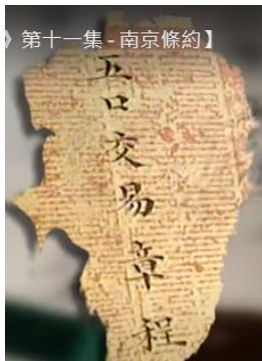 》第十一集 - 南京條約】
五口交易章程